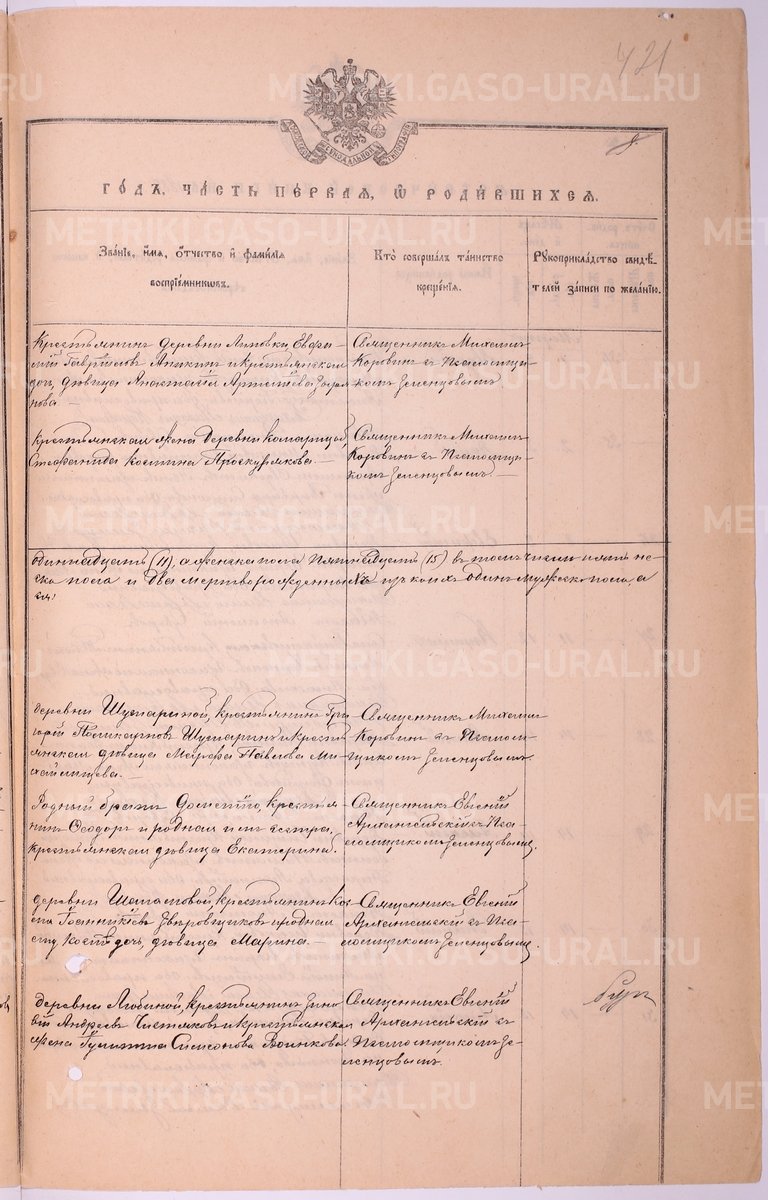 421
МОСКОВСКОЙ СѴНОДАЛЬНОЙ ТИПОГРАФІИ
ГО́ДЪ, ЧА́СТЬ ПЕ́РВАЯ, Ѡ҆ РОДИ́ВШИХСЯ.
Зва́нїе, и҆́мя, ѻ҆́тчество и҆ фами́лїя
воспрїе́мникѡвъ.
Кто̀ соверша́лъ та́инство
креще́нїя.
Рꙋкоприкла́дство свидѣ́-
телей за́писи по жела́нїю.
Крестьянинъ деревни Липовки, Евфи-
мій Гавріиловъ Аникинъ и крестьянская
дочь, дѣвица Анастасія Артемьева
нова.
Священникъ Михаилъ
Коровинъ съ Псаломщи-
комъ Зеленцовымъ
Крестьянская жена деревни Комарицы,
Стефанида Космина Проскурякова.
Священникъ Михаилъ
Коровинъ съ Псаломщи-
комъ Зеленцовымъ.
одиннадцать (11), а женска пола пятнадцать (15) въ томъ числѣ
ска пола и два мертворожденныхъ изъ коихъ одинъ мужеска пола, а
деревни Шупариной, крестьянинъ Гри-
горій Поликарповъ Шупаринъ и кресть-
янская дѣвица Марфа Павлова Ми-
Священникъ Михаилъ
Коровинъ съ Псалом-
щикомъ Зеленцовымъ.
Родный братъ Дометію, крестья-
нинъ Ѳеодоръ и родная имъ сестра,
крестьянская дѣвица Екатерина.
Священникъ Евгеній
Архангельскій съ Пса-
ломщикомъ Зеленцовымъ.
деревни Шипатовой, крестьянинъ Кос-
ма Іоанникіевъ Звѣровщиковъ и родная
ему, Космѣ дочь, дѣвица Марина.
Священникъ Евгеній
Архангельскій съ Пса-
ломщикомъ Зеленцовымъ.
деревни Любиной, крестьянинъ Зино-
вій Андреевъ Чистяковъ и крестьянская
жена Гулитта Симеонова Воинкова.
Священникъ Евгеній
Архангельскій съ
Псаломщикомъ Зе-
ленцовымъ.
METRIKI.GASO-URAL.RU